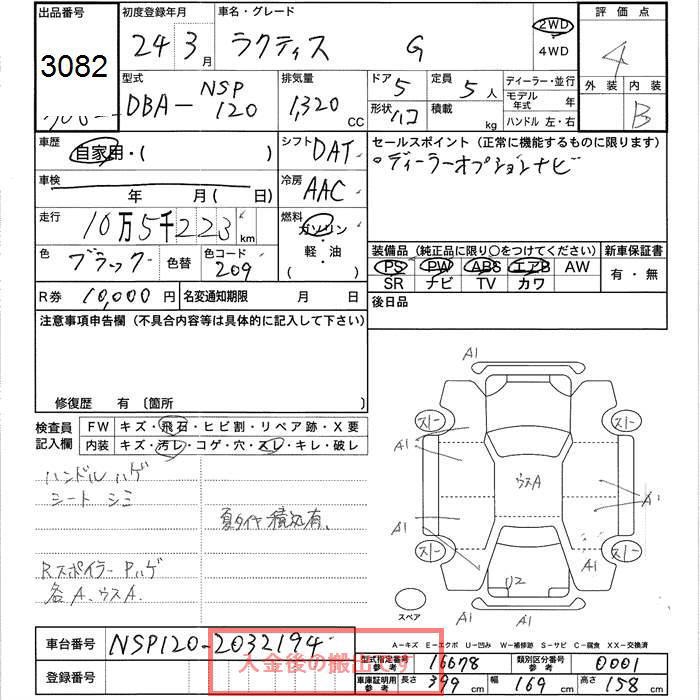 出品番号
3082
初度登録年月
24年3月
車名・グレード
ラクティス G
2WD
4WD
評価点
4
外装 内装
B
型式
DBA-NSP120
排気量
1,320 CC
ドア 5
形状 ハコ
定員 5人
積載 kg
ディーラー・並行
モデル年式 年
ハンドル 左・右
車歴
自家用・( )
シフト DAT
車検
年 月( 日)
冷房 AAC
走行
10万5千223 km
燃料
ガソリン
軽・油
( )
色 ブラック
色替
色コード 209
R券 10,000円
名変通知期限 月 日
セールスポイント(正常に機能するものに限ります)
○ディーラーオプションナビ
装備品(純正品に限り○をつけてください)
PS PW ABS エアB AW
SR ナビ TV カワ
新車保証書
有・無
後日品
注意事項申告欄(不具合内容等は具体的に記入して下さい)
修復歴 有 〔箇所 〕
検査員記入欄
FW キズ・飛石・ヒビ割・リペア跡・X要
内装 キズ・汚レ・コゲ・穴・スレ・キレ・破レ
ハンドル ハゲ
シート シミ
夏タイヤ積込有、
Rスポイラー Pハゲ
各A、ウスA、
A1
A1
スト
スト
A1
A1
ウスA
A1
A1
スト
スト
A1
U2
スペア
A-キズ E-エクボ U-凹み W-補修跡 S-サビ C-腐食 XX-交換済
車台番号 NSP120-2032194
入金後の搬出です
登録番号
型式指定番号 参考 16678
類別区分番号 参考 0001
車庫証明用 参考 長さ 399 cm 幅 169 cm 高さ 158 cm